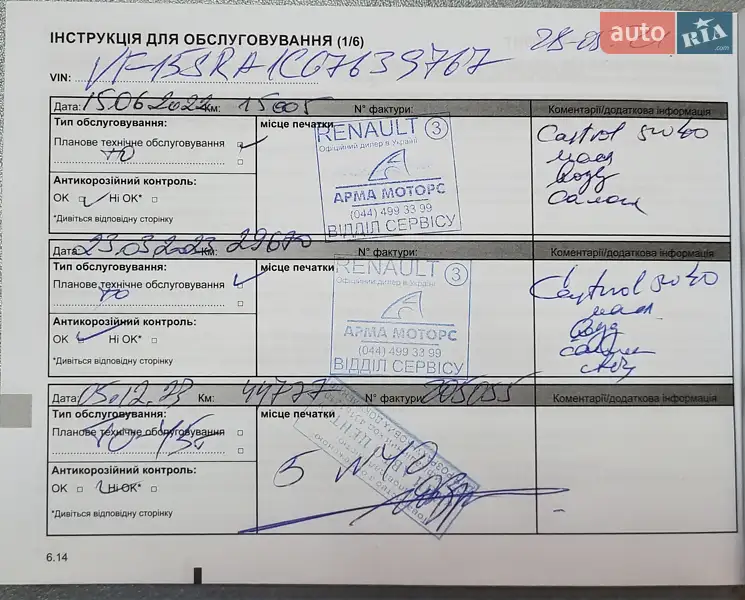 auto RIA .com
ІНСТРУКЦІЯ ДЛЯ ОБСЛУГОВУВАННЯ (1/6)
VIN: VF15SRA1C67639767
Дата: 15.06.2022 Км: 15005 N° фактури: Коментарії/додаткова інформація
Тип обслуговування:
Планове технічне обслуговування
ТО
місце печатки
RENAULT 3
Офіційний дилер в Україні
АРМА МОТОРС
(044) 499 33 99
ВІДДІЛ СЕРВІСУ
Castrol 5w40
масл
возд
салон
Антикорозійний контроль:
ОК Ні ОК*
*Дивіться відповідну сторінку
Дата: 23.03.2023 Км: 29670 N° фактури: Коментарії/додаткова інформація
Тип обслуговування:
Планове технічне обслуговування
ТО
місце печатки
RENAULT 3
Офіційний дилер в Україні
АРМА МОТОРС
(044) 499 33 99
ВІДДІЛ СЕРВІСУ
Castrol 5w40
масл
возд
салон
Антикорозійний контроль:
ОК Ні ОК*
*Дивіться відповідну сторінку
Дата: 05.12.23 Км: 44777 N° фактури: 205055 Коментарії/додаткова інформація
Тип обслуговування:
Планове технічне обслуговування
ТО-45
місце печатки
5 W 40
Антикорозійний контроль:
ОК Ні ОК*
*Дивіться відповідну сторінку
6.14